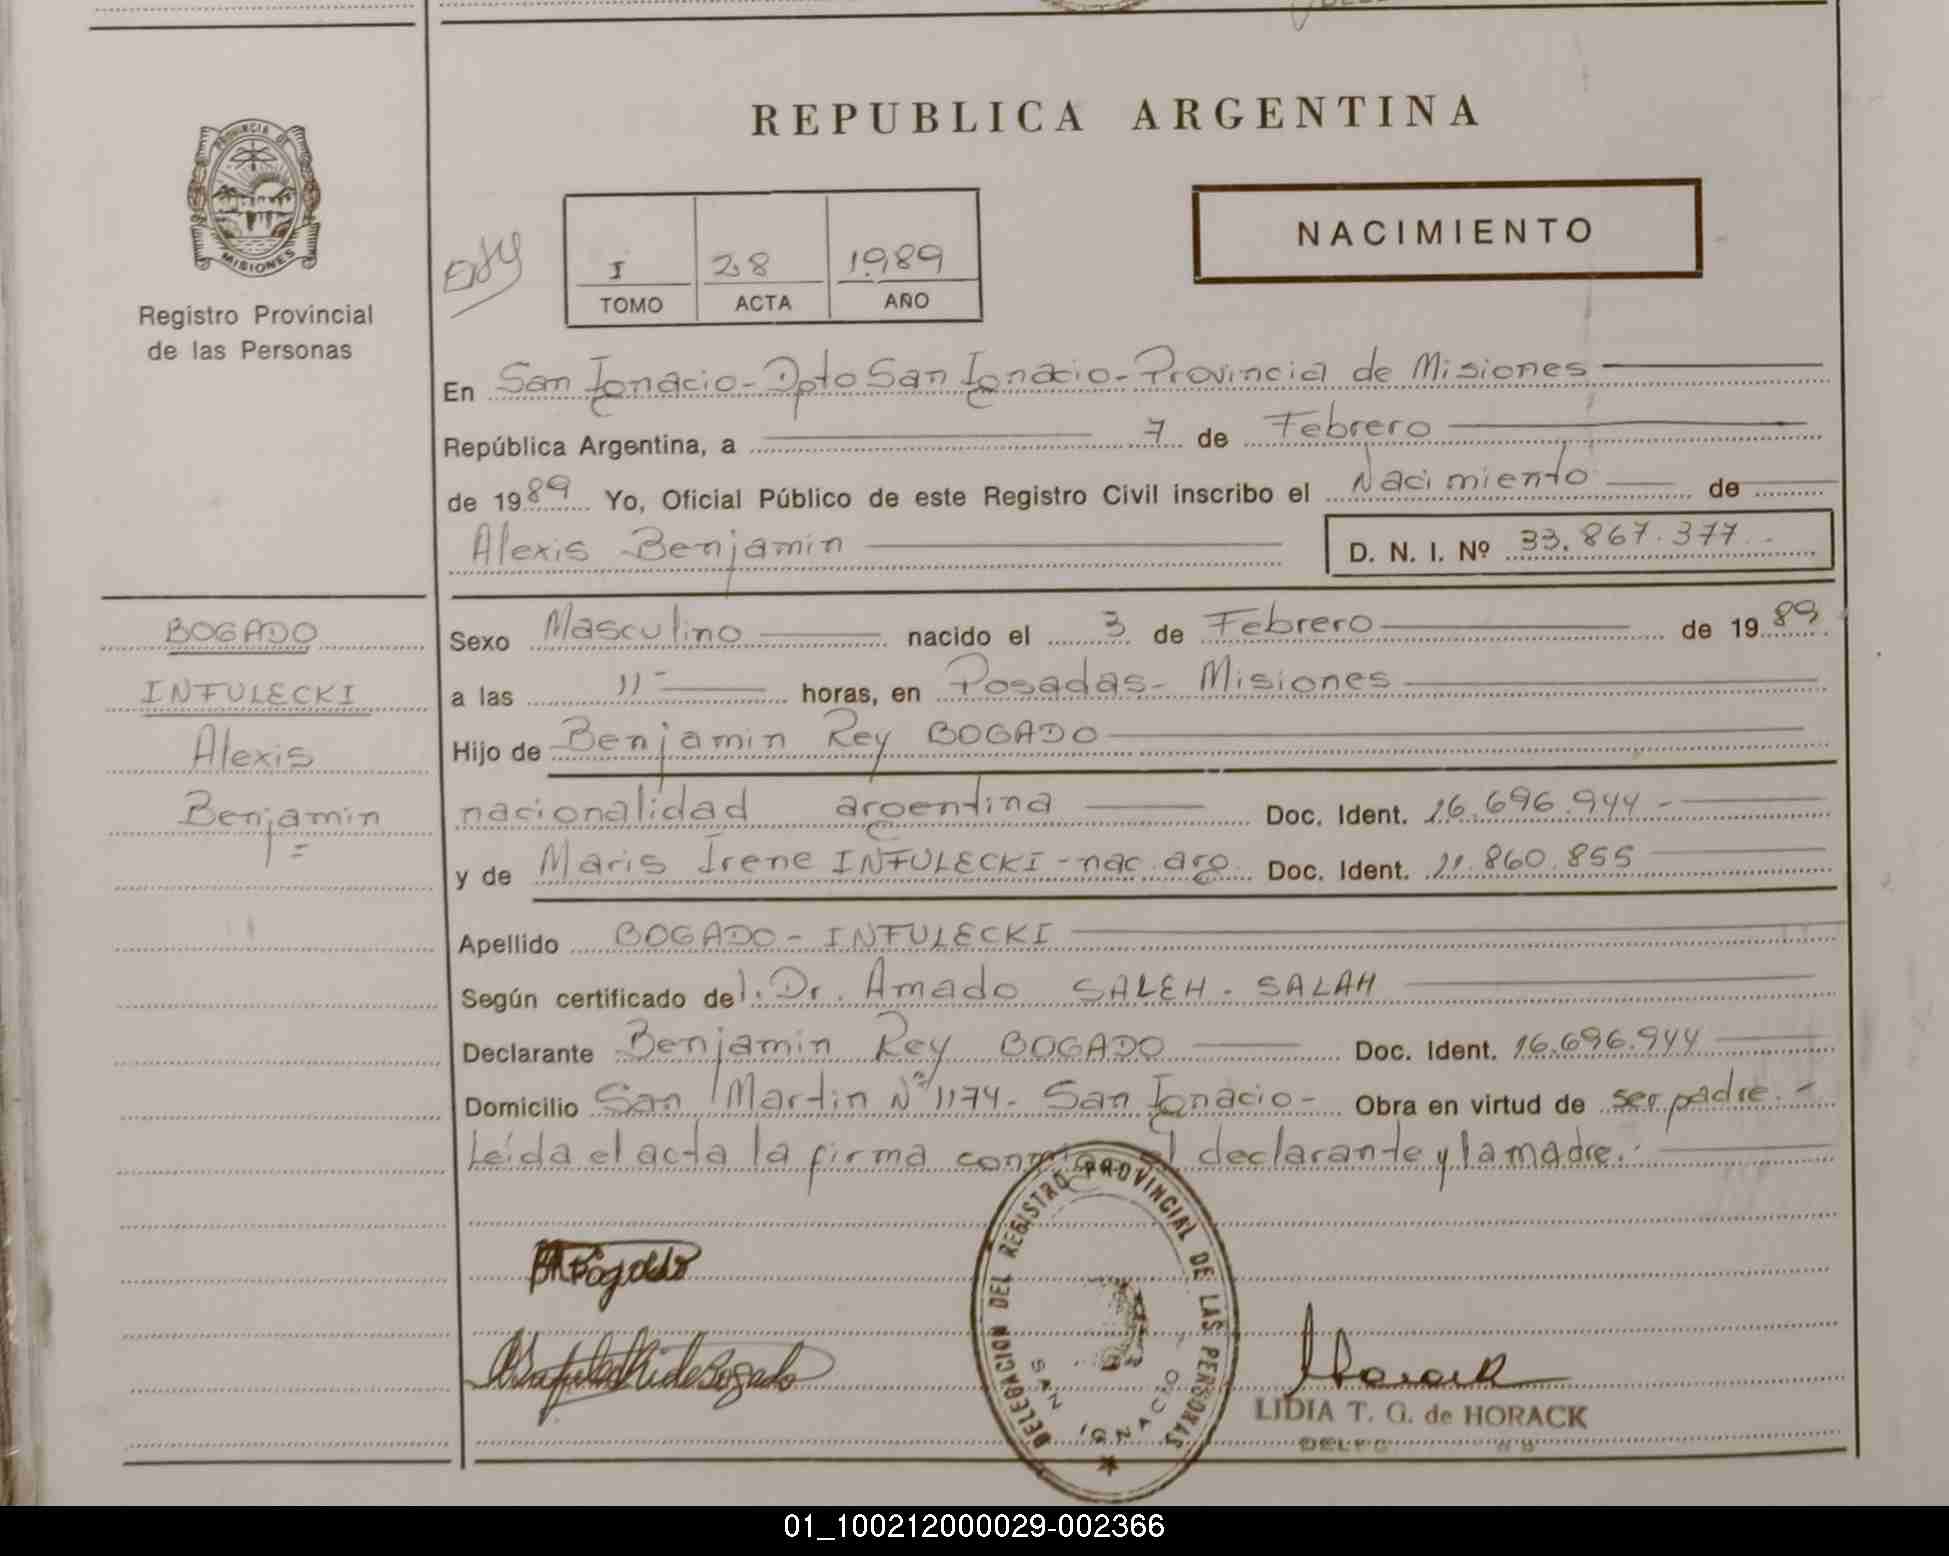 REPUBLICA ARGENTINA
PROVINCIA DE
MISIONES
Registro Provincial
de las Personas
NACIMIENTO
I 28 1989
TOMO ACTA AÑO
En San Ignacio - Dpto San Ignacio - Provincia de Misiones
República Argentina, a 7 de Febrero
de 1989 Yo, Oficial Público de este Registro Civil inscribo el Nacimiento de
Alexis Benjamin D. N. I. Nº 33.867.377.-
BOGADO
INFULECKI
Alexis
Benjamin
Sexo Masculino nacido el 3 de Febrero de 1989
a las 11- horas, en Posadas - Misiones
Hijo de Benjamin Rey BOGADO
nacionalidad argentina Doc. Ident. 16.696.944-
y de Maris Irene INFULECKI - nac. arg. Doc. Ident. 21.860.855
Apellido BOGADO - INFULECKI
Según certificado del. Dr. Amado SALEH - SALAH
Declarante Benjamin Rey BOGADO Doc. Ident. 16.696.944
Domicilio San Martin Nº 1174 - San Ignacio - Obra en virtud de ser padre.-
Leída el acta la firma conmigo el declarante y la madre.-
DELEGACION DEL REGISTRO PROVINCIAL DE LAS PERSONAS
SAN IGNACIO
BRBogado
Infulecki de Bogado
Horack
LIDIA T. G. de HORACK
01_100212000029-002366